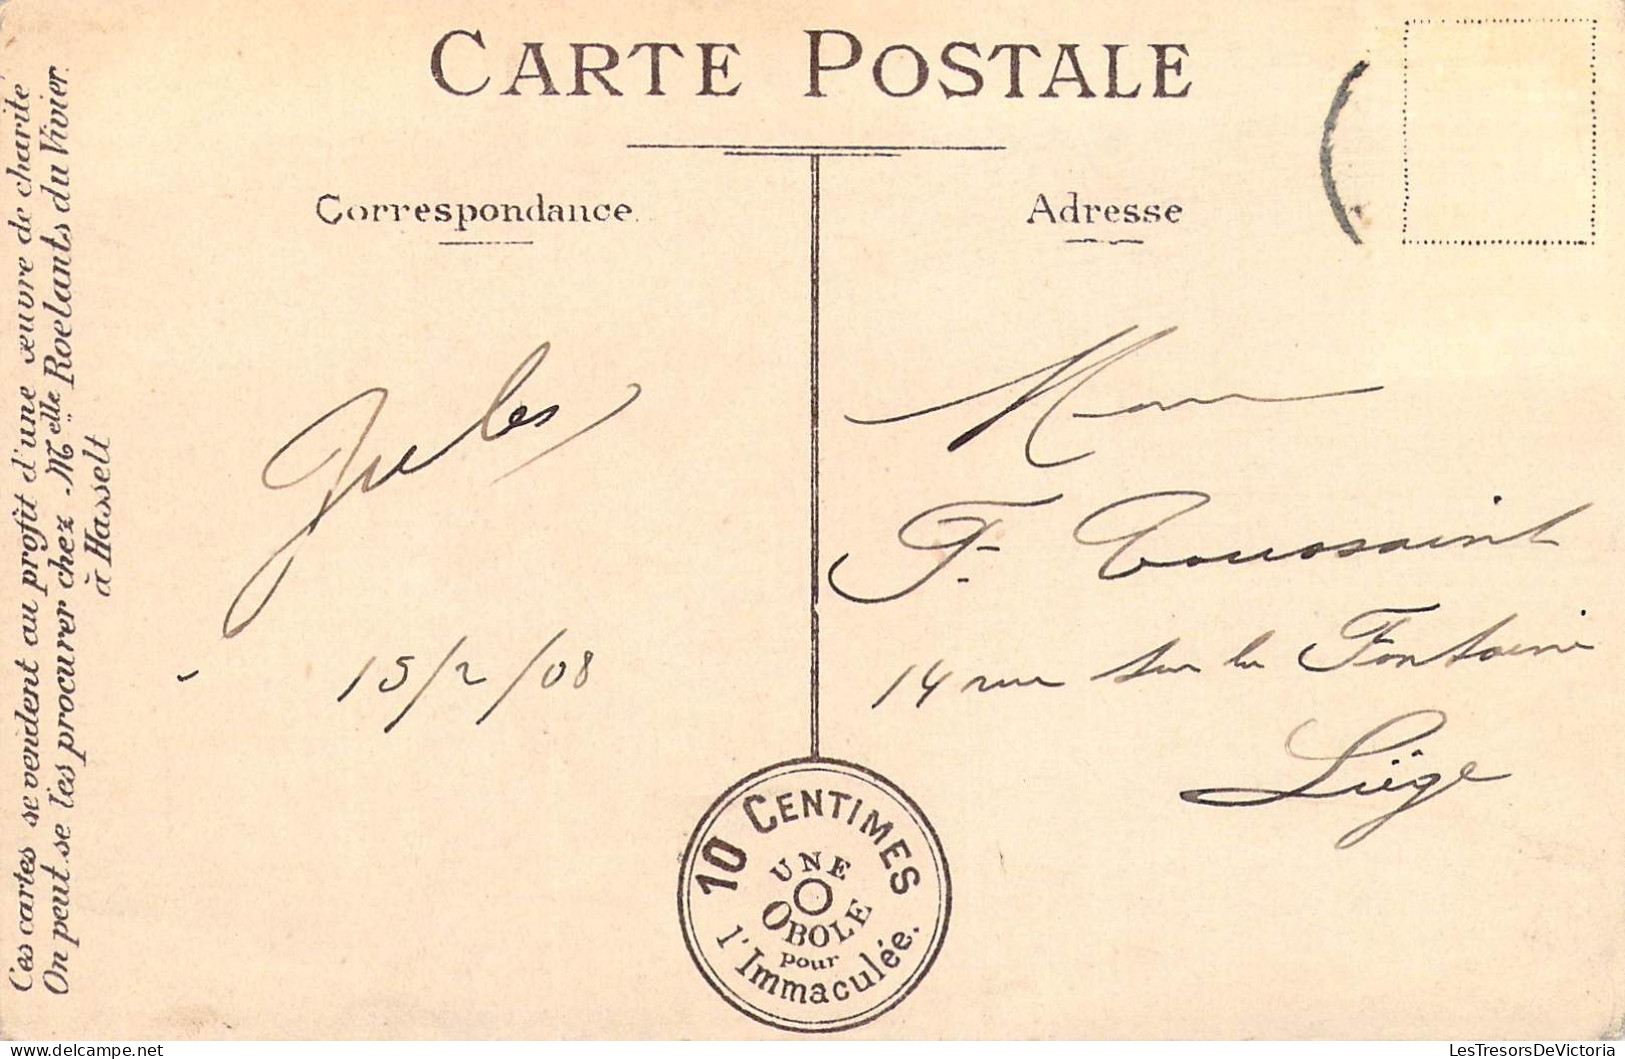 CARTE POSTALE
Correspondance.
Adresse
Ces cartes se vendent au profit d'une œuvre de charite
On peut se les procurer chez Melle Roelants du Vivier.
à Hasselt
Jules
15/2/08
F. Toussaint
14 rue sur la Fontaine
Liège
10 CENTIMES
UNE
OBOLE
pour
l'Immaculée.
LesTresorsDeVictoria